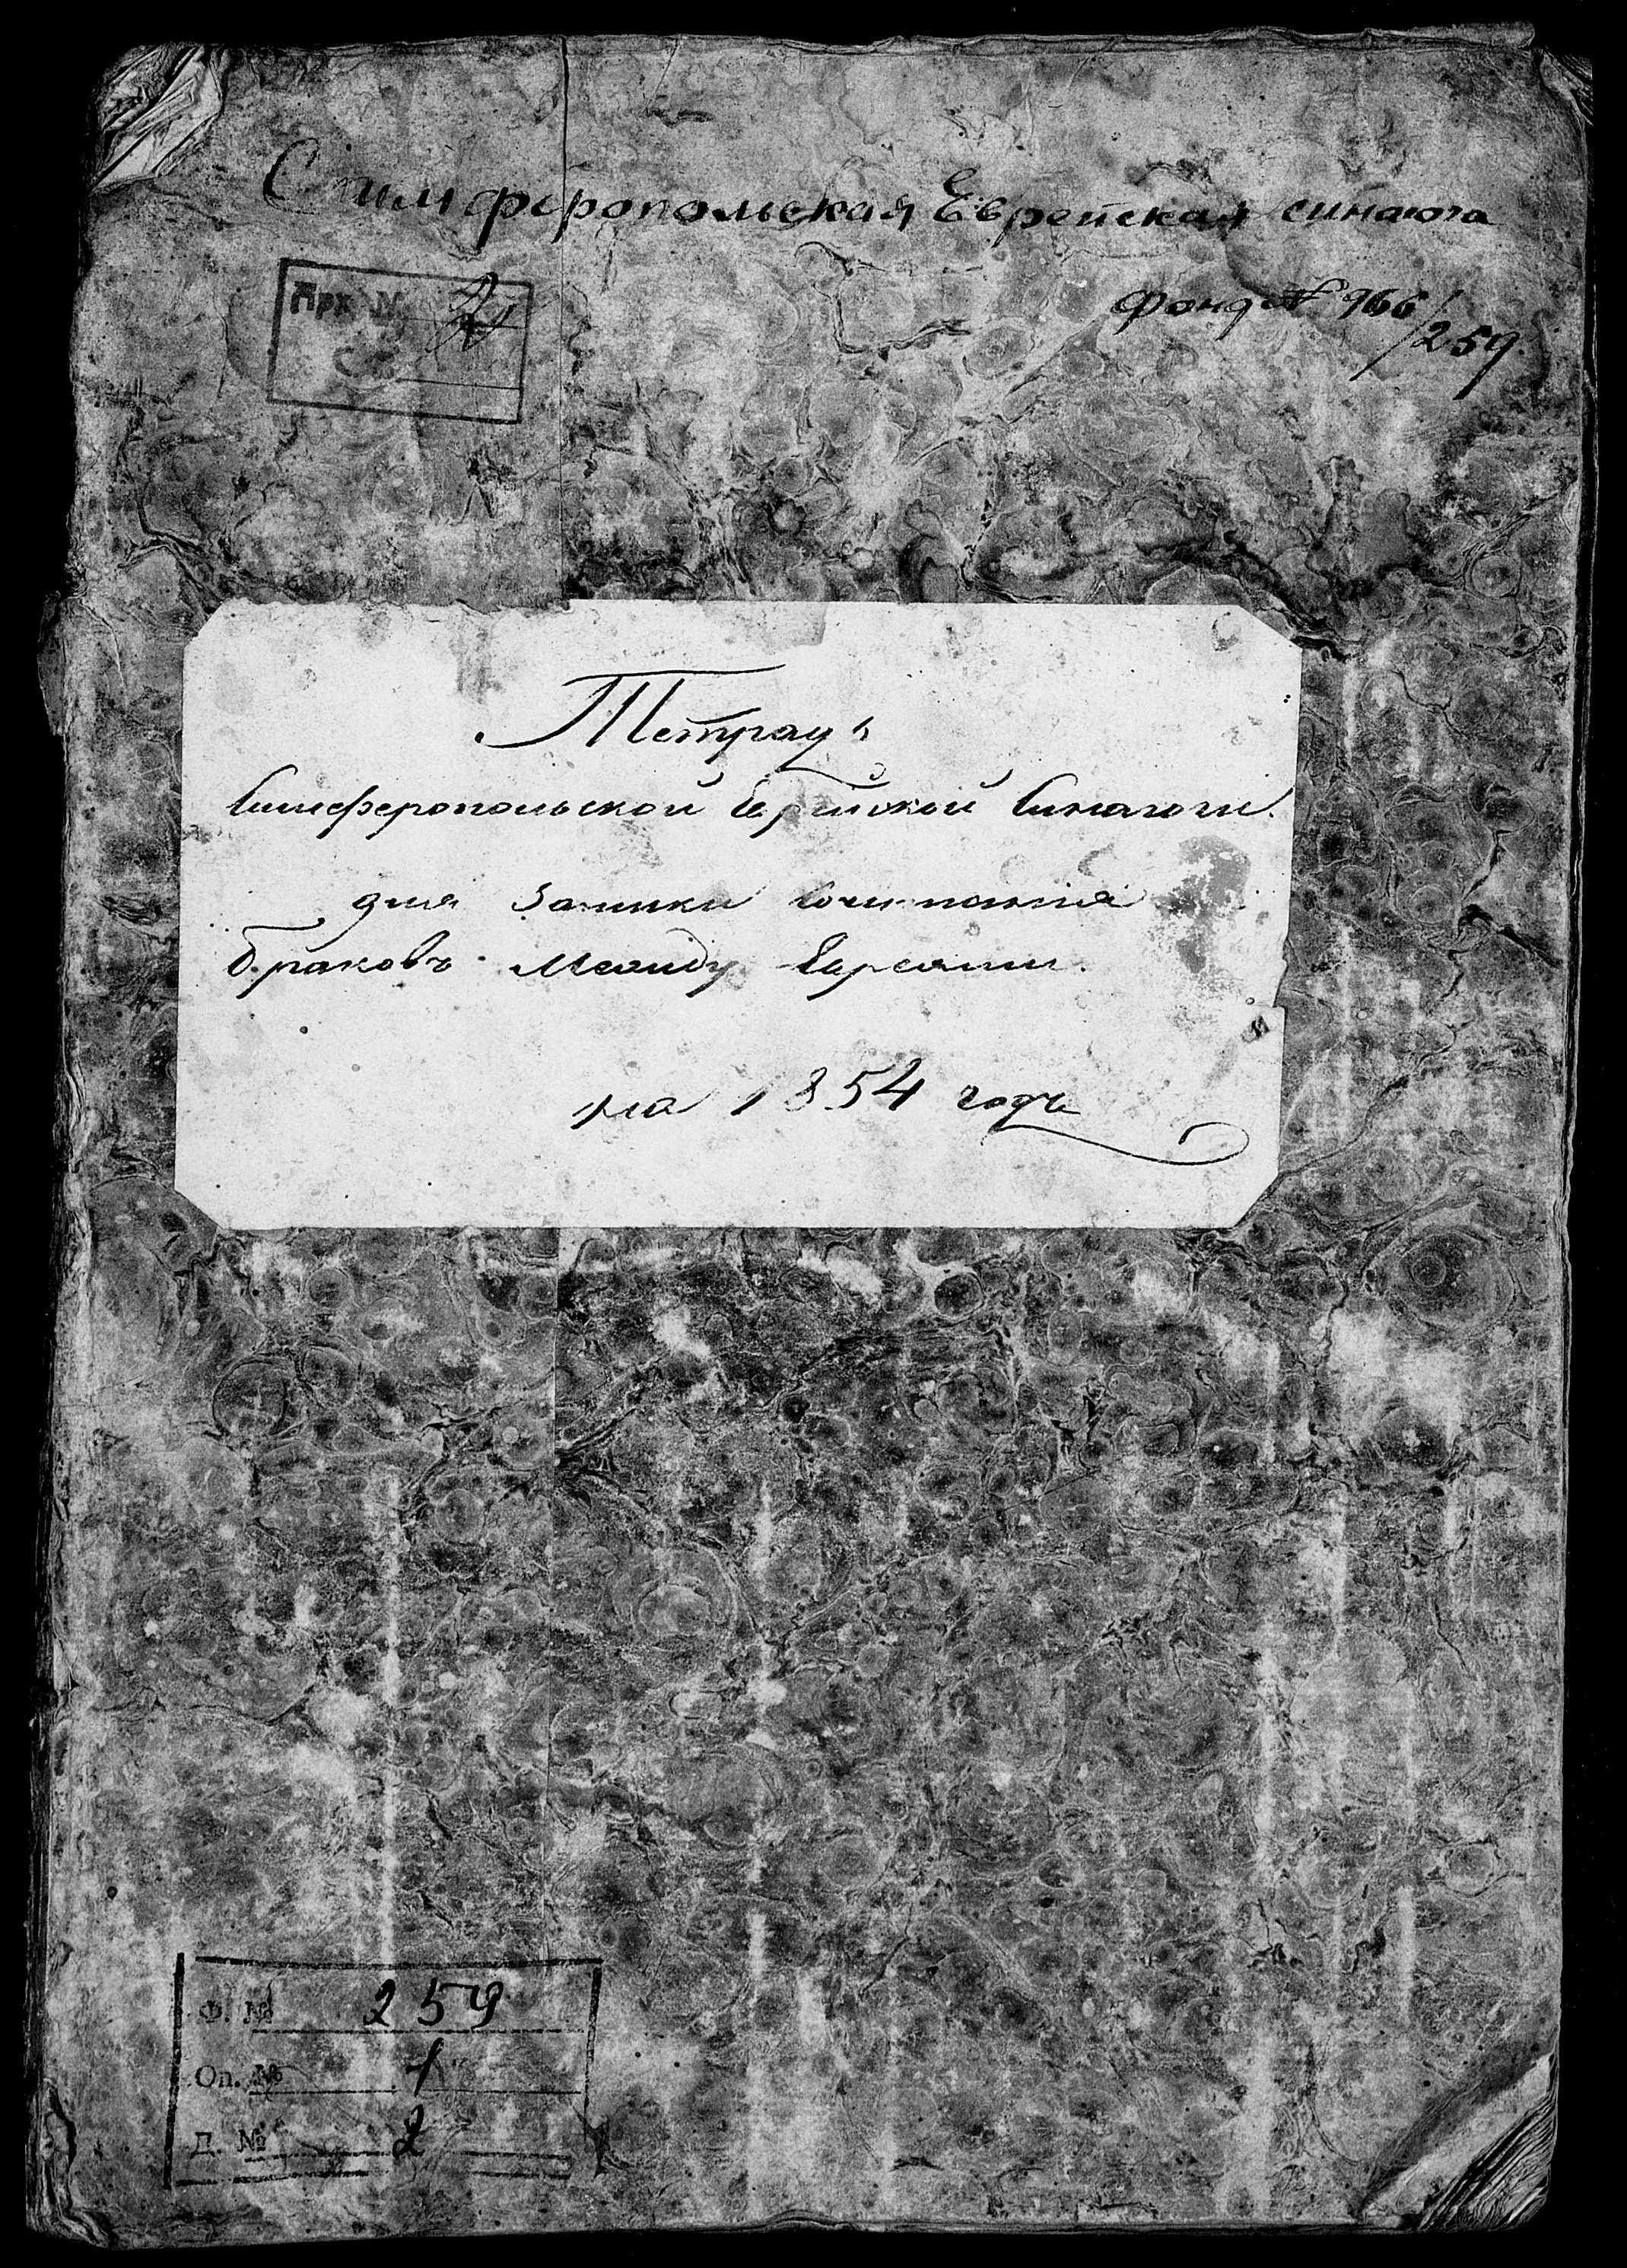 Симферопольская Еврейская синагога
Арх. №
Фонд № 966/259
Тетрадь
Симферопольской Еврейской Синагоги
для записки Сочитания
браковъ Между Евреями.
на 1854 годъ
Ф. № 259
Оп. № 1
Д. № 2